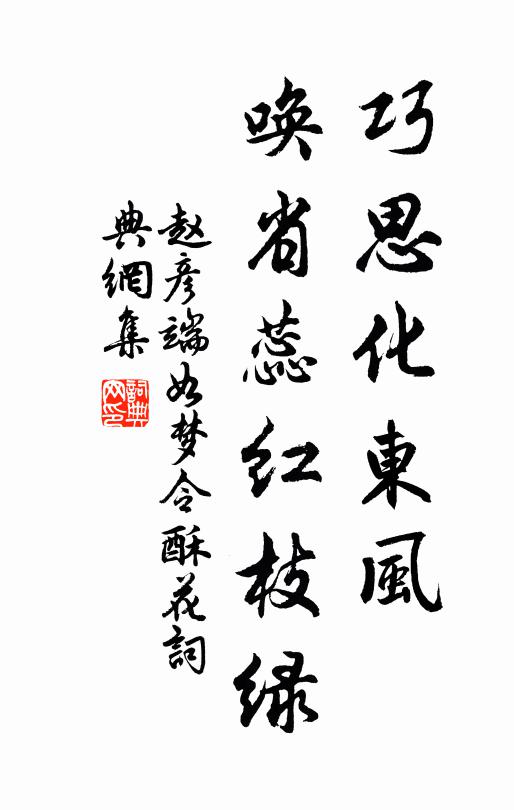 巧思化東風
喚省蕊紅枝緑
赵彦端如梦令酥花詞
典網集
詞典網印